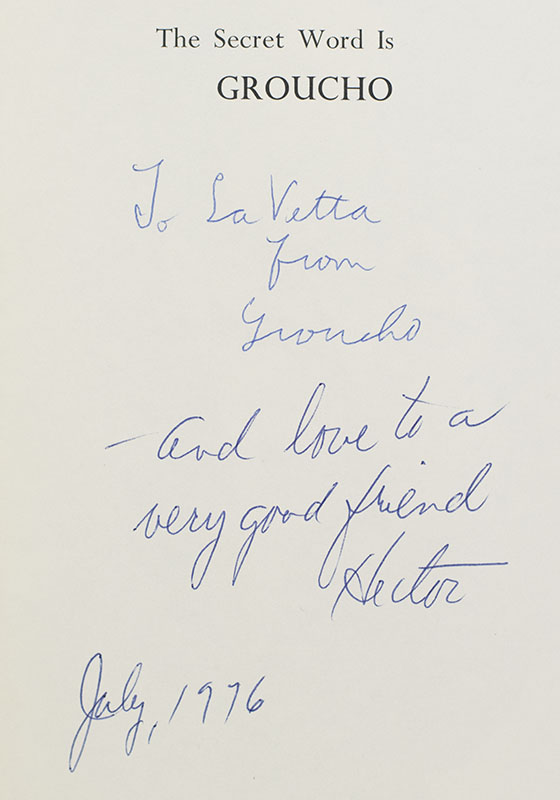 The Secret Word Is
GROUCHO
To La Vetta
from
Groucho
– and love to a
very good friend
Hector
July, 1976